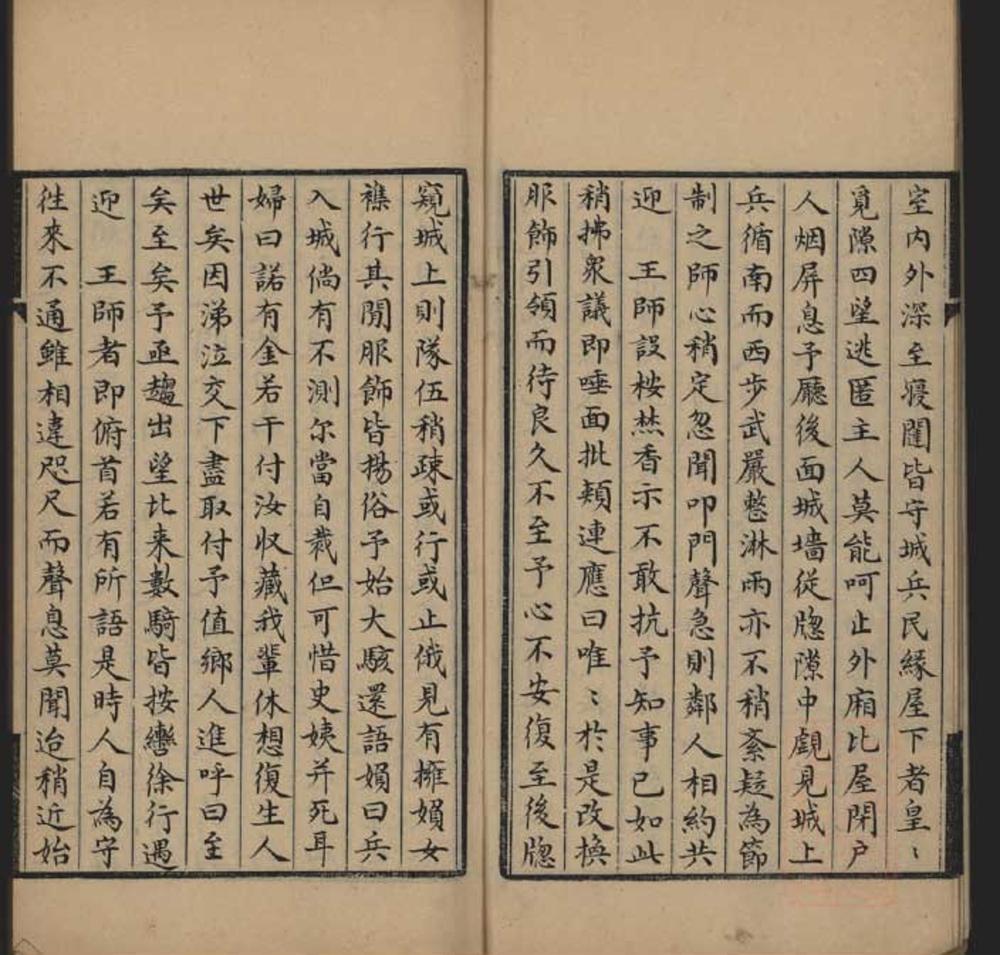 室内外深至寝闥皆守城兵民緣屋下者皇〻
覓隙四望逃匿主人莫能呵止外廂比屋閉户
人烟屏息予廳後面城墻從牕隙中覷見城上
兵循南而西步武嚴整淋雨亦不稍紊疑為節
制之師心稍定忽聞叩門聲急則鄰人相約共
迎 王師設桉焚香示不敢抗予知事已如此
稍拂衆議即唾面批頰連應曰唯〻於是改換
服飾引領而待良久不至予心不安復至後牕
窺城上則隊伍稍疎或行或止俄見有擁嬪女
襍行其閒服飾皆揚俗予始大駭還語嬪曰兵
入城倘有不測尔當自裁但可惜史姨并死耳
婦曰諾有金若干付汝收藏我輩休想復生人
世矣因涕泣交下盡取付予值鄉人進呼曰至
矣至矣予亟趨出望北来數騎皆按轡徐行遇
迎 王師者即俯首若有所語是時人自為守
往來不通雖相違咫尺而聲息莫聞迨稍近始